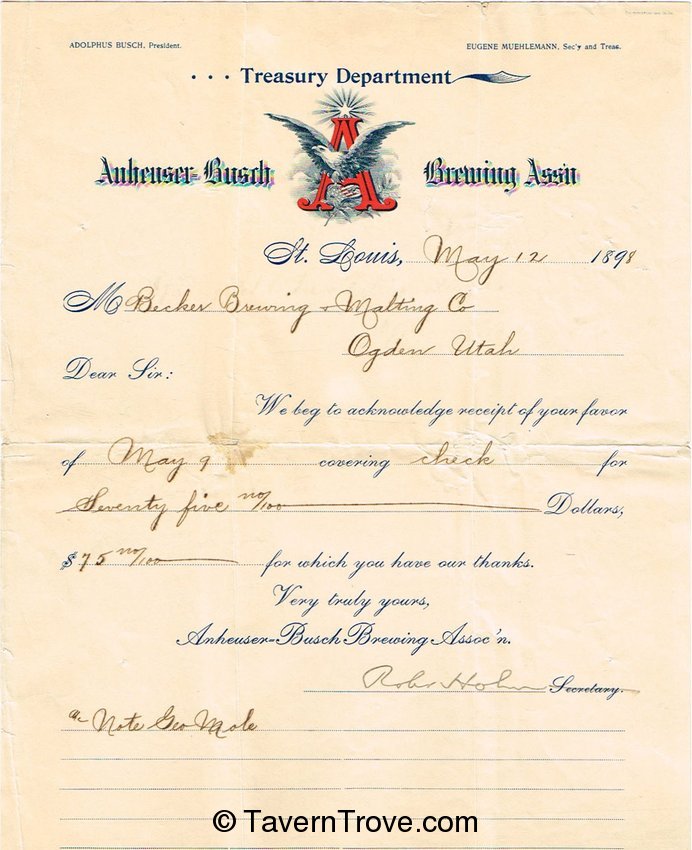 ADOLPHUS BUSCH, President.
EUGENE MUEHLEMANN, Sec'y and Treas.
. . . Treasury Department
A
Anheuser-Busch Brewing Ass'n
St. Louis, May 12 1898
M Becker Brewing & Malting Co
Ogden Utah
Dear Sir:
We beg to acknowledge receipt of your favor
of May 9 covering check for
Seventy five no/100 Dollars,
$75 no/100 for which you have our thanks.
Very truly yours,
Anheuser-Busch Brewing Assoc'n.
Secretary.
a/c Note Geo Mole
© TavernTrove.com